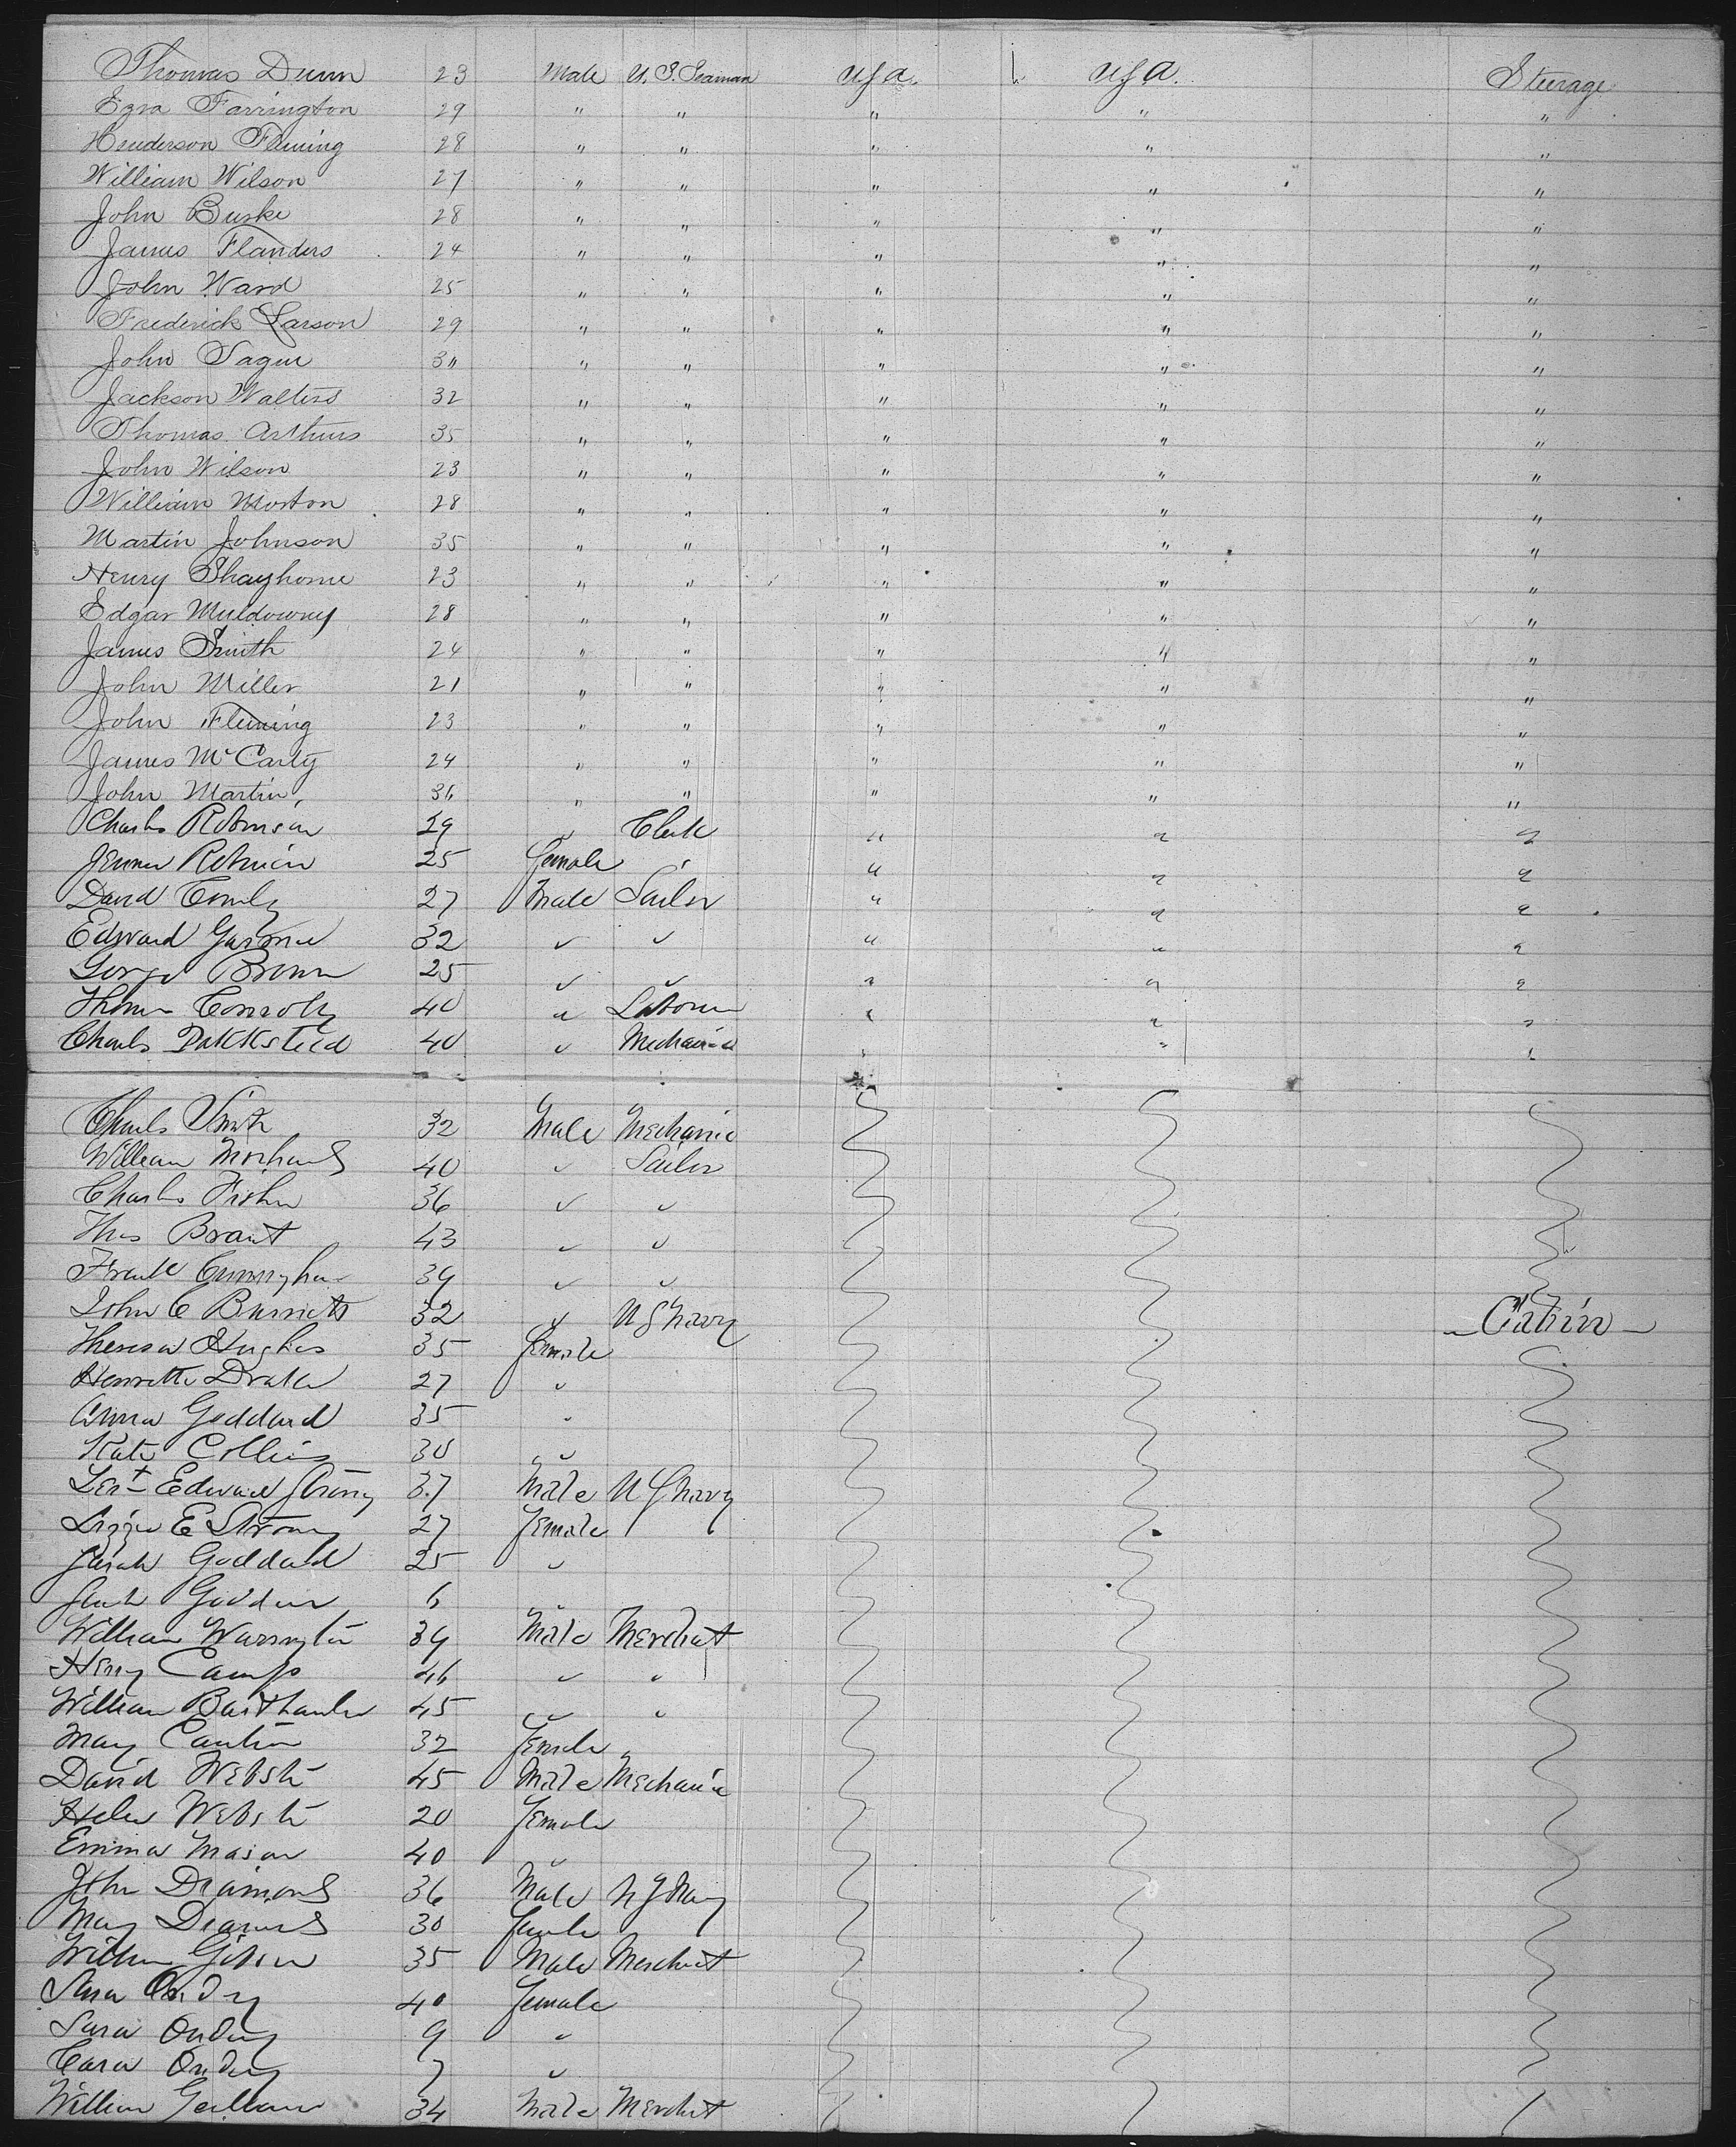 Thomas Dunn 23 Male U.S. Seaman USA. USA. Steerage
Ezra Farrington 29 " " " " "
Henderson Fleming 28 " " " " "
William Wilson 27 " " " " "
John Burke 28 " " " " "
James Flanders 24 " " " " "
John Ward 25 " " " " "
Frederick Larson 29 " " " " "
John " " " " "
Jackson Walters 32 " " " " "
Thomas Arthurs 35 " " " " "
John Wilson 23 " " " " "
William Morton 28 " " " " "
Martin Johnson 35 " " " " "
Henry Shayhorne 23 " " " " "
Edgar Muldowny 28 " " " " "
James Smith 24 " " " " "
John Miller 21 " " " " "
John Fleming 23 " " " " "
James McCarty 24 " " " " "
John Martin, " " " " "
Charles Robinson 29 " Clerk " " "
25 Female " " "
David 27 Male Sailor " " "
Edward 32 " " " " "
George Brown 25 " " " " "
Connoly 40 " " " "
Charles 40 " Mechanic " " "
Charles Smith 32 Male Mechanic
William 40 " Sailor
Charles Fisher 36 " "
Thos Brant 43 " "
Frank 39 " "
John C 32 " US Navy Cabin
Theresa Hughes 35 Female
Henrietta Drake 27 "
Anna Goddard 35 "
Kate Collins 30 "
Leut Edward Strong 37 Male US Navy
Lizzie E Strong 27 Female
Sarah Goddard 25 "
6 "
William Warrington 39 Male Merchant
Henry Camp 46 " "
William 45 " "
Mary 32 Female "
David Webster 45 Male Mechanic
Helen Webster 20 Female
Emma Mason 40 "
John Diamond 36 Male US Navy
Mary Diamond 30 Female
William Gibson 35 Male Merchant
40 Female
Sara 9 "
7 "
William 34 Male Merchant